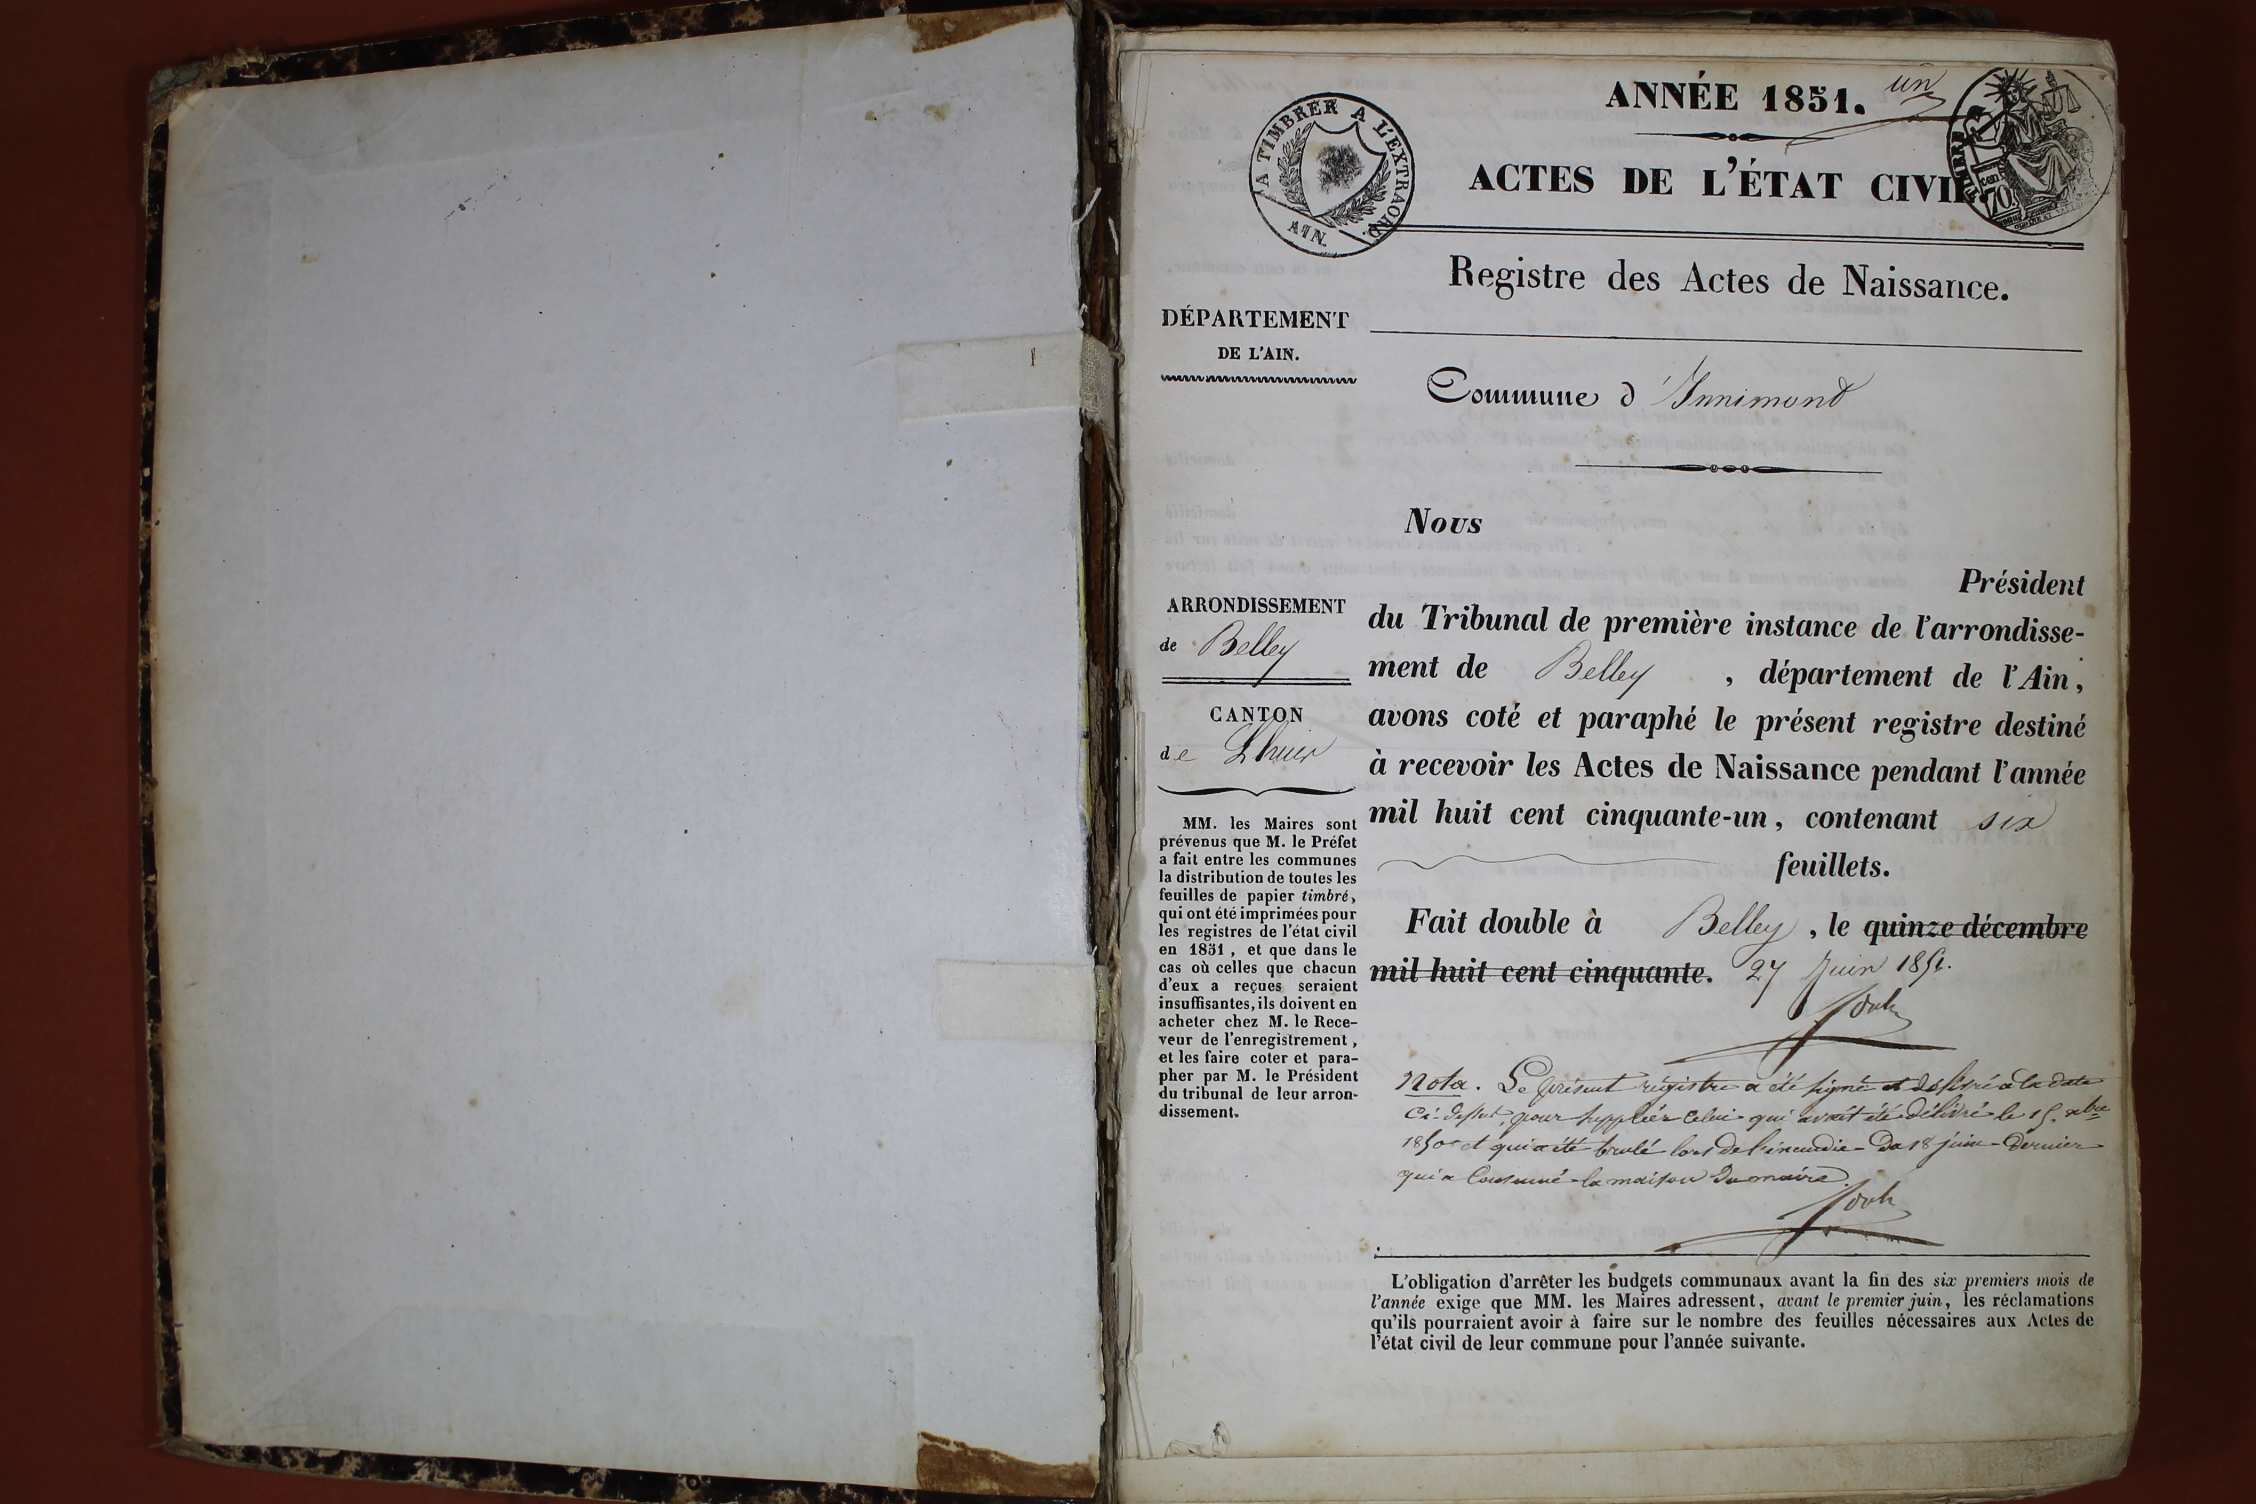 ANNÉE 1851. un
A TIMBRER A L'EXTRAORD.
AIN.
TIMBRE
70
cen
ACTES DE L'ÉTAT CIVIL.
Registre des Actes de Naissance.
DÉPARTEMENT
DE L'AIN.
Commune d'Innimond
ARRONDISSEMENT
de Belley
CANTON
de Lhuis
MM. les Maires sont
prévenus que M. le Préfet
a fait entre les communes
la distribution de toutes les
feuilles de papier timbré,
qui ont été imprimées pour
les registres de l'état civil
en 1851, et que dans le
cas où celles que chacun
d'eux a reçues seraient
insuffisantes, ils doivent en
acheter chez M. le Rece-
veur de l'enregistrement,
et les faire coter et para-
pher par M. le Président
du tribunal de leur arron-
dissement.
Nous
Président
du Tribunal de première instance de l'arrondisse-
ment de Belley, département de l'Ain,
avons coté et paraphé le présent registre destiné
à recevoir les Actes de Naissance pendant l'année
mil huit cent cinquante-un, contenant six
feuillets.
Fait double à Belley, le quinze décembre
mil huit cent cinquante. 27 Juin 1851.
Nota. Le présent régistre a été signé et délivré à la date
Ci-dessus, pour suppléer celui qui avait été délivré le 15. xbre
1850 et qui a été brulé lors de l'incendie du 18 juin dernier
qui a consumé la maison du maire.
L'obligation d'arrêter les budgets communaux avant la fin des six premiers mois de
l'année exige que MM. les Maires adressent, avant le premier juin, les réclamations
qu'ils pourraient avoir à faire sur le nombre des feuilles nécessaires aux Actes de
l'état civil de leur commune pour l'année suivante.